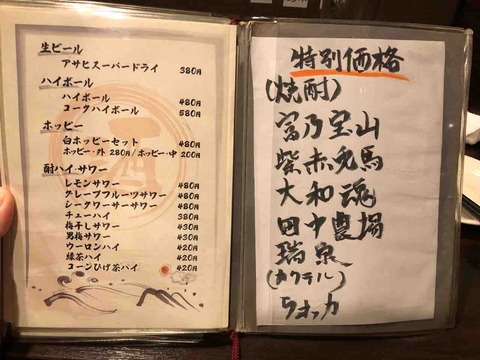 生ビール
アサヒスーパードライ 380円
ハイボール
ハイボール 480円
コークハイボール 580円
ホッピー
白ホッピーセット 480円
ホッピー・外 280円/ホッピー・中 200円
酎ハイ・サワー
レモンサワー 480円
グレープフルーツサワー 480円
シークワーサーサワー 480円
チューハイ 380円
梅干しサワー 430円
男梅サワー 430円
ウーロンハイ 420円
緑茶ハイ 420円
コーンひげ茶ハイ 420円
特別価格
(焼酎)
宮乃宝山
紫赤兎馬
大和魂
田中農場
瑞泉
(カクテル)
ウオッカ